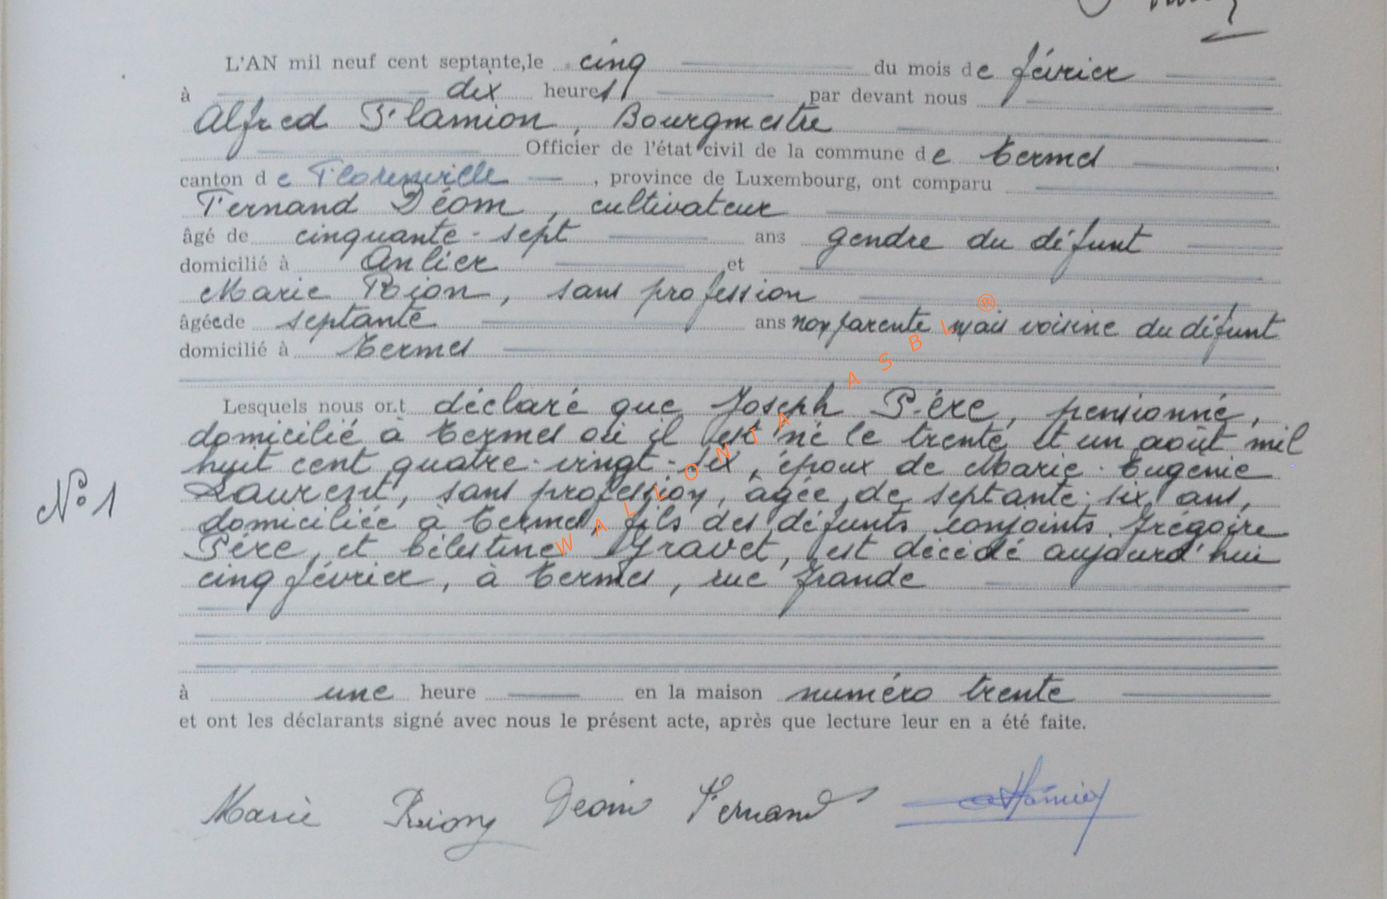 L'AN mil neuf cent septante, le cinq du mois de février
à dix heures par devant nous
Alfred Flamion, Bourgmestre
Officier de l'état civil de la commune de Termes
canton de Florenville, province de Luxembourg, ont comparu
Fernand Déom, cultivateur
âgé de cinquante-sept ans gendre du défunt
domicilié à Anlier et
Marie Rion, sans profession
âgée de septante ans non parente mais voisine du défunt
domicilié à Termes
Lesquels nous ont déclaré que Joseph Père, pensionné,
domicilié à Termes où il est né le trente et un août mil
huit cent quatre-vingt-six, époux de Marie-Eugénie
Laurent, sans profession, âgée de septante-six ans,
N° 1
domiciliée à Termes, fils des défunts conjoints Grégoire
Père, et Célestine Gravet, est décédé aujourd'hui
cinq février, à Termes, rue Grande
à une heure en la maison numéro trente
et ont les déclarants signé avec nous le présent acte, après que lecture leur en a été faite.
Marie Rion Deom Fernand
WALLONIA ASBL ®